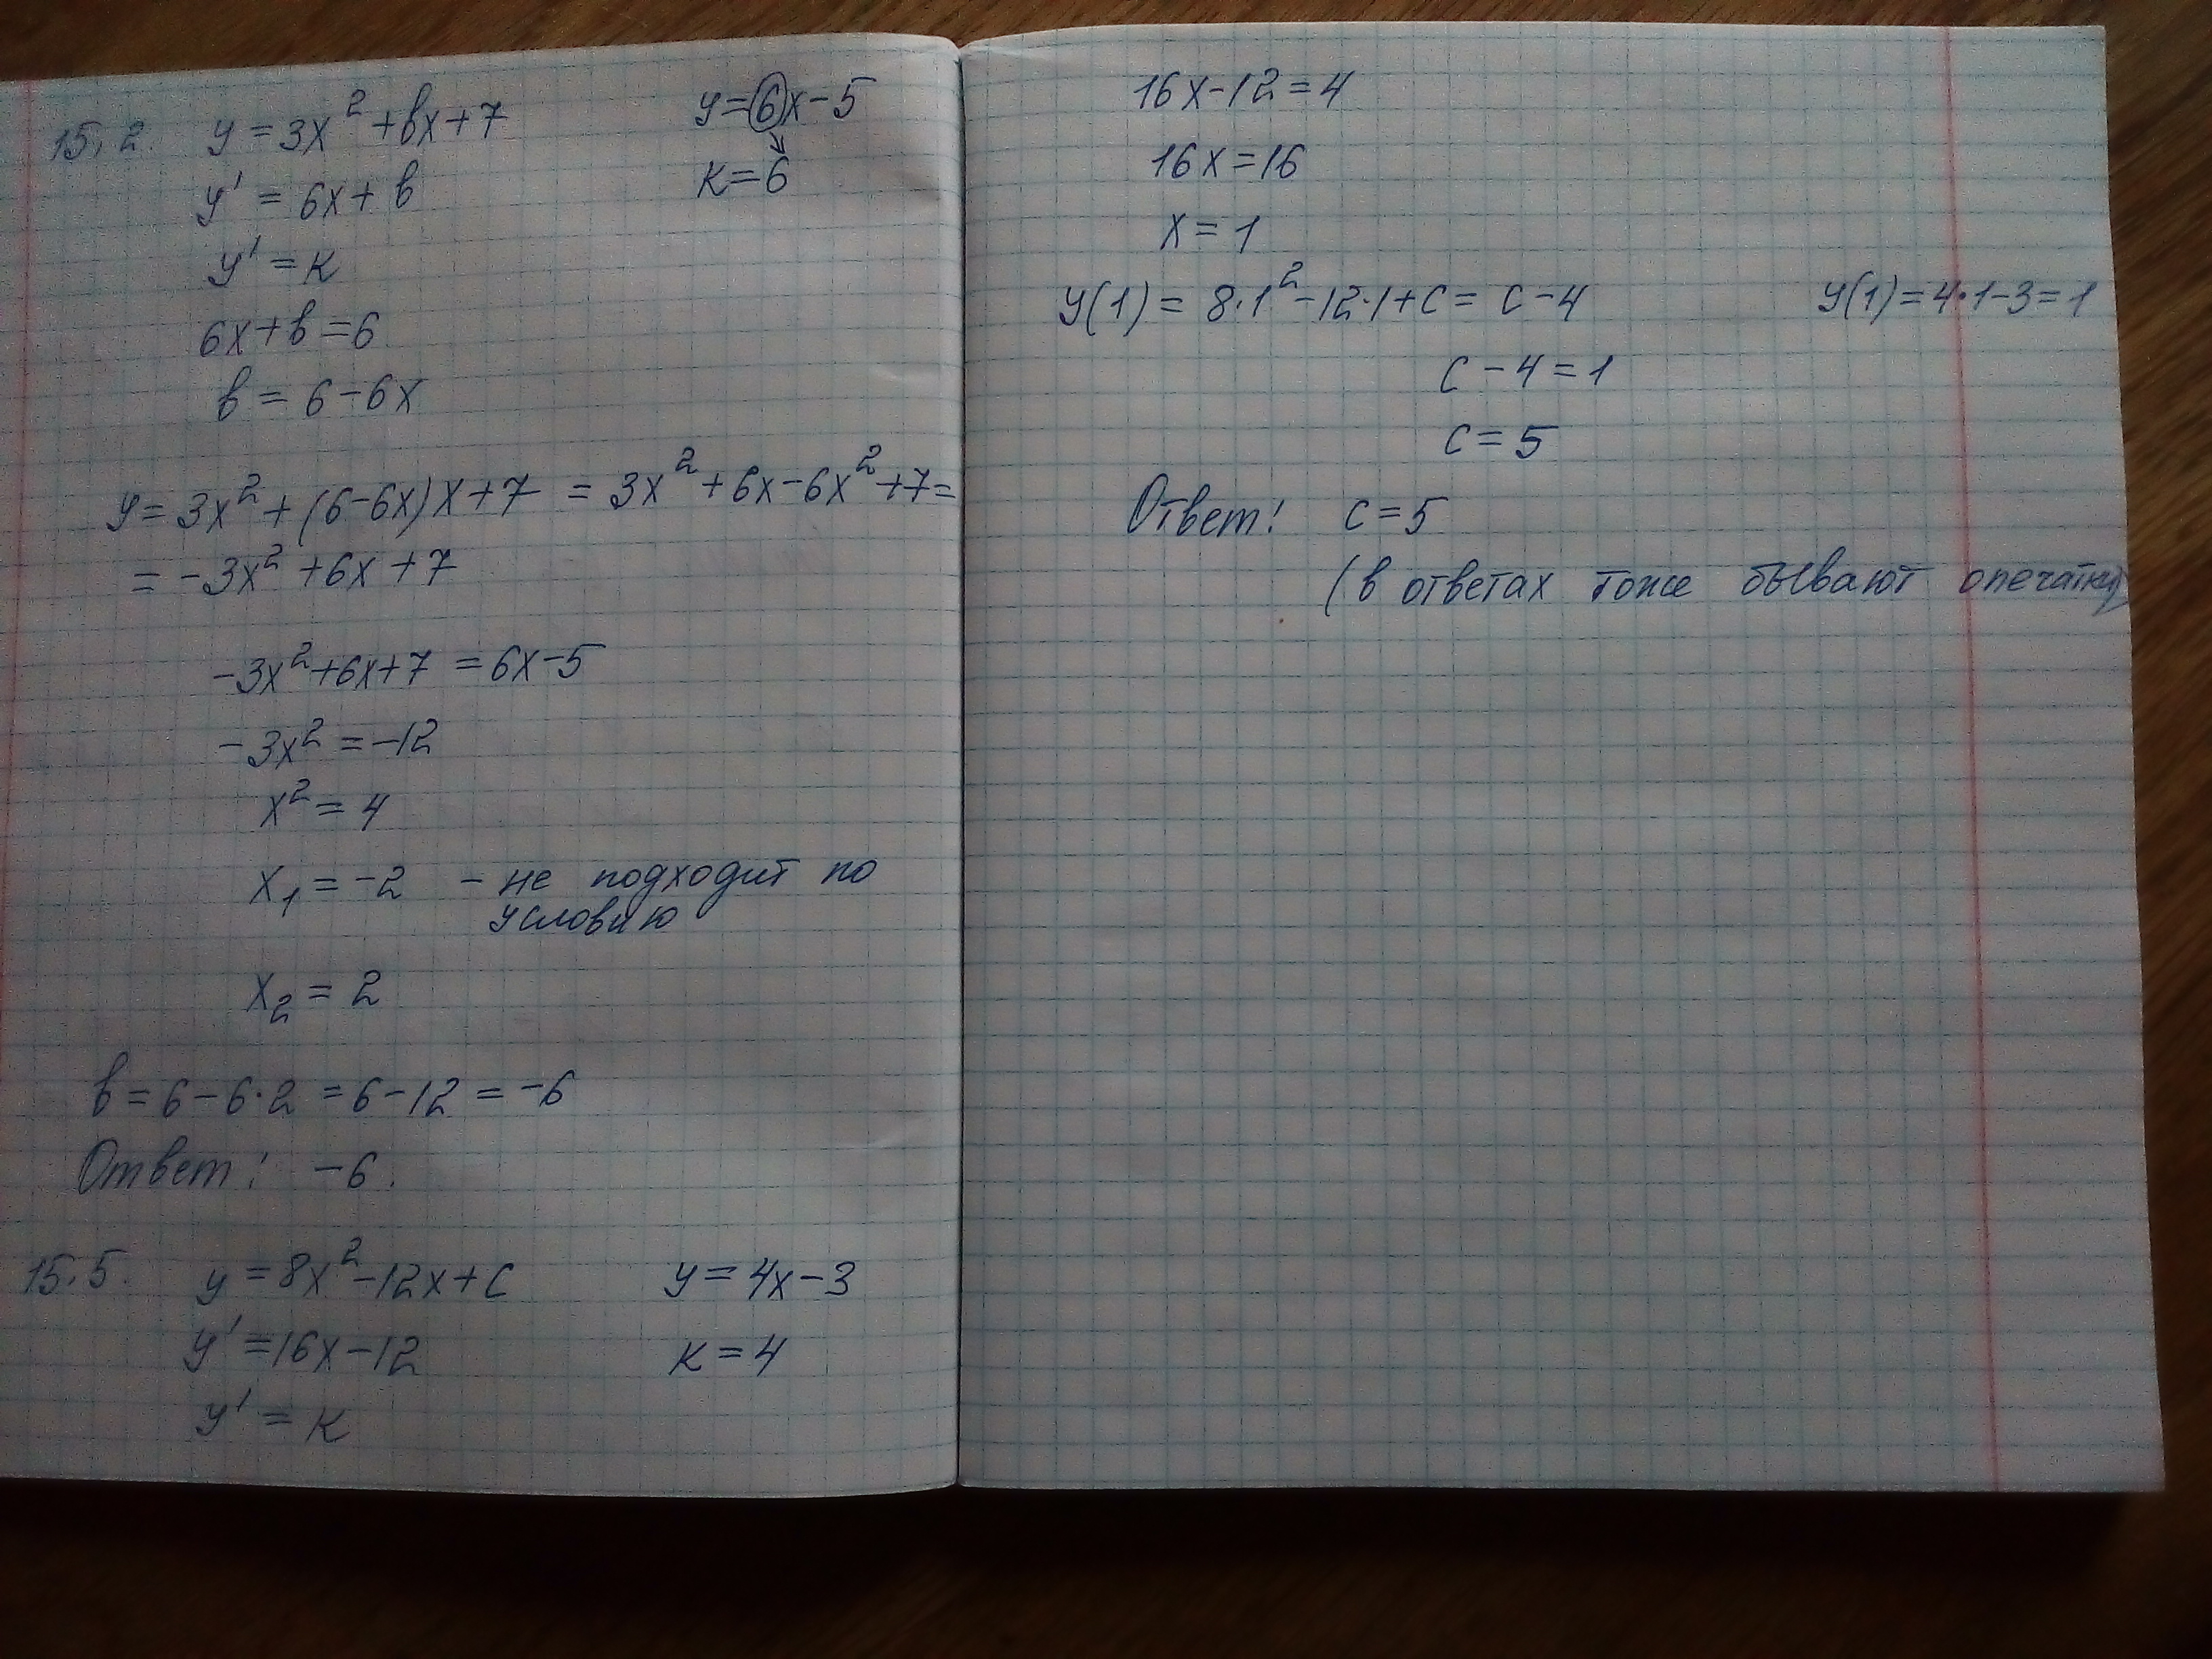 15.2. y = 3x² + bx + 7 y = 6x - 5
y' = 6x + b k = 6
y' = k
6x + b = 6
b = 6 - 6x
y = 3x² + (6 - 6x)x + 7 = 3x² + 6x - 6x² + 7 =
= -3x² + 6x + 7
-3x² + 6x + 7 = 6x - 5
-3x² = -12
x² = 4
x₁ = -2 - не подходит по
условию
x₂ = 2
b = 6 - 6·2 = 6 - 12 = -6
Ответ: -6.
15.5. y = 8x² - 12x + c y = 4x - 3
y' = 16x - 12 k = 4
y' = k
16x - 12 = 4
16x = 16
x = 1
y(1) = 8·1² - 12·1 + c = c - 4 y(1) = 4·1 - 3 = 1
c - 4 = 1
c = 5
Ответ: c = 5
(в ответах тоже бывают опечатки)